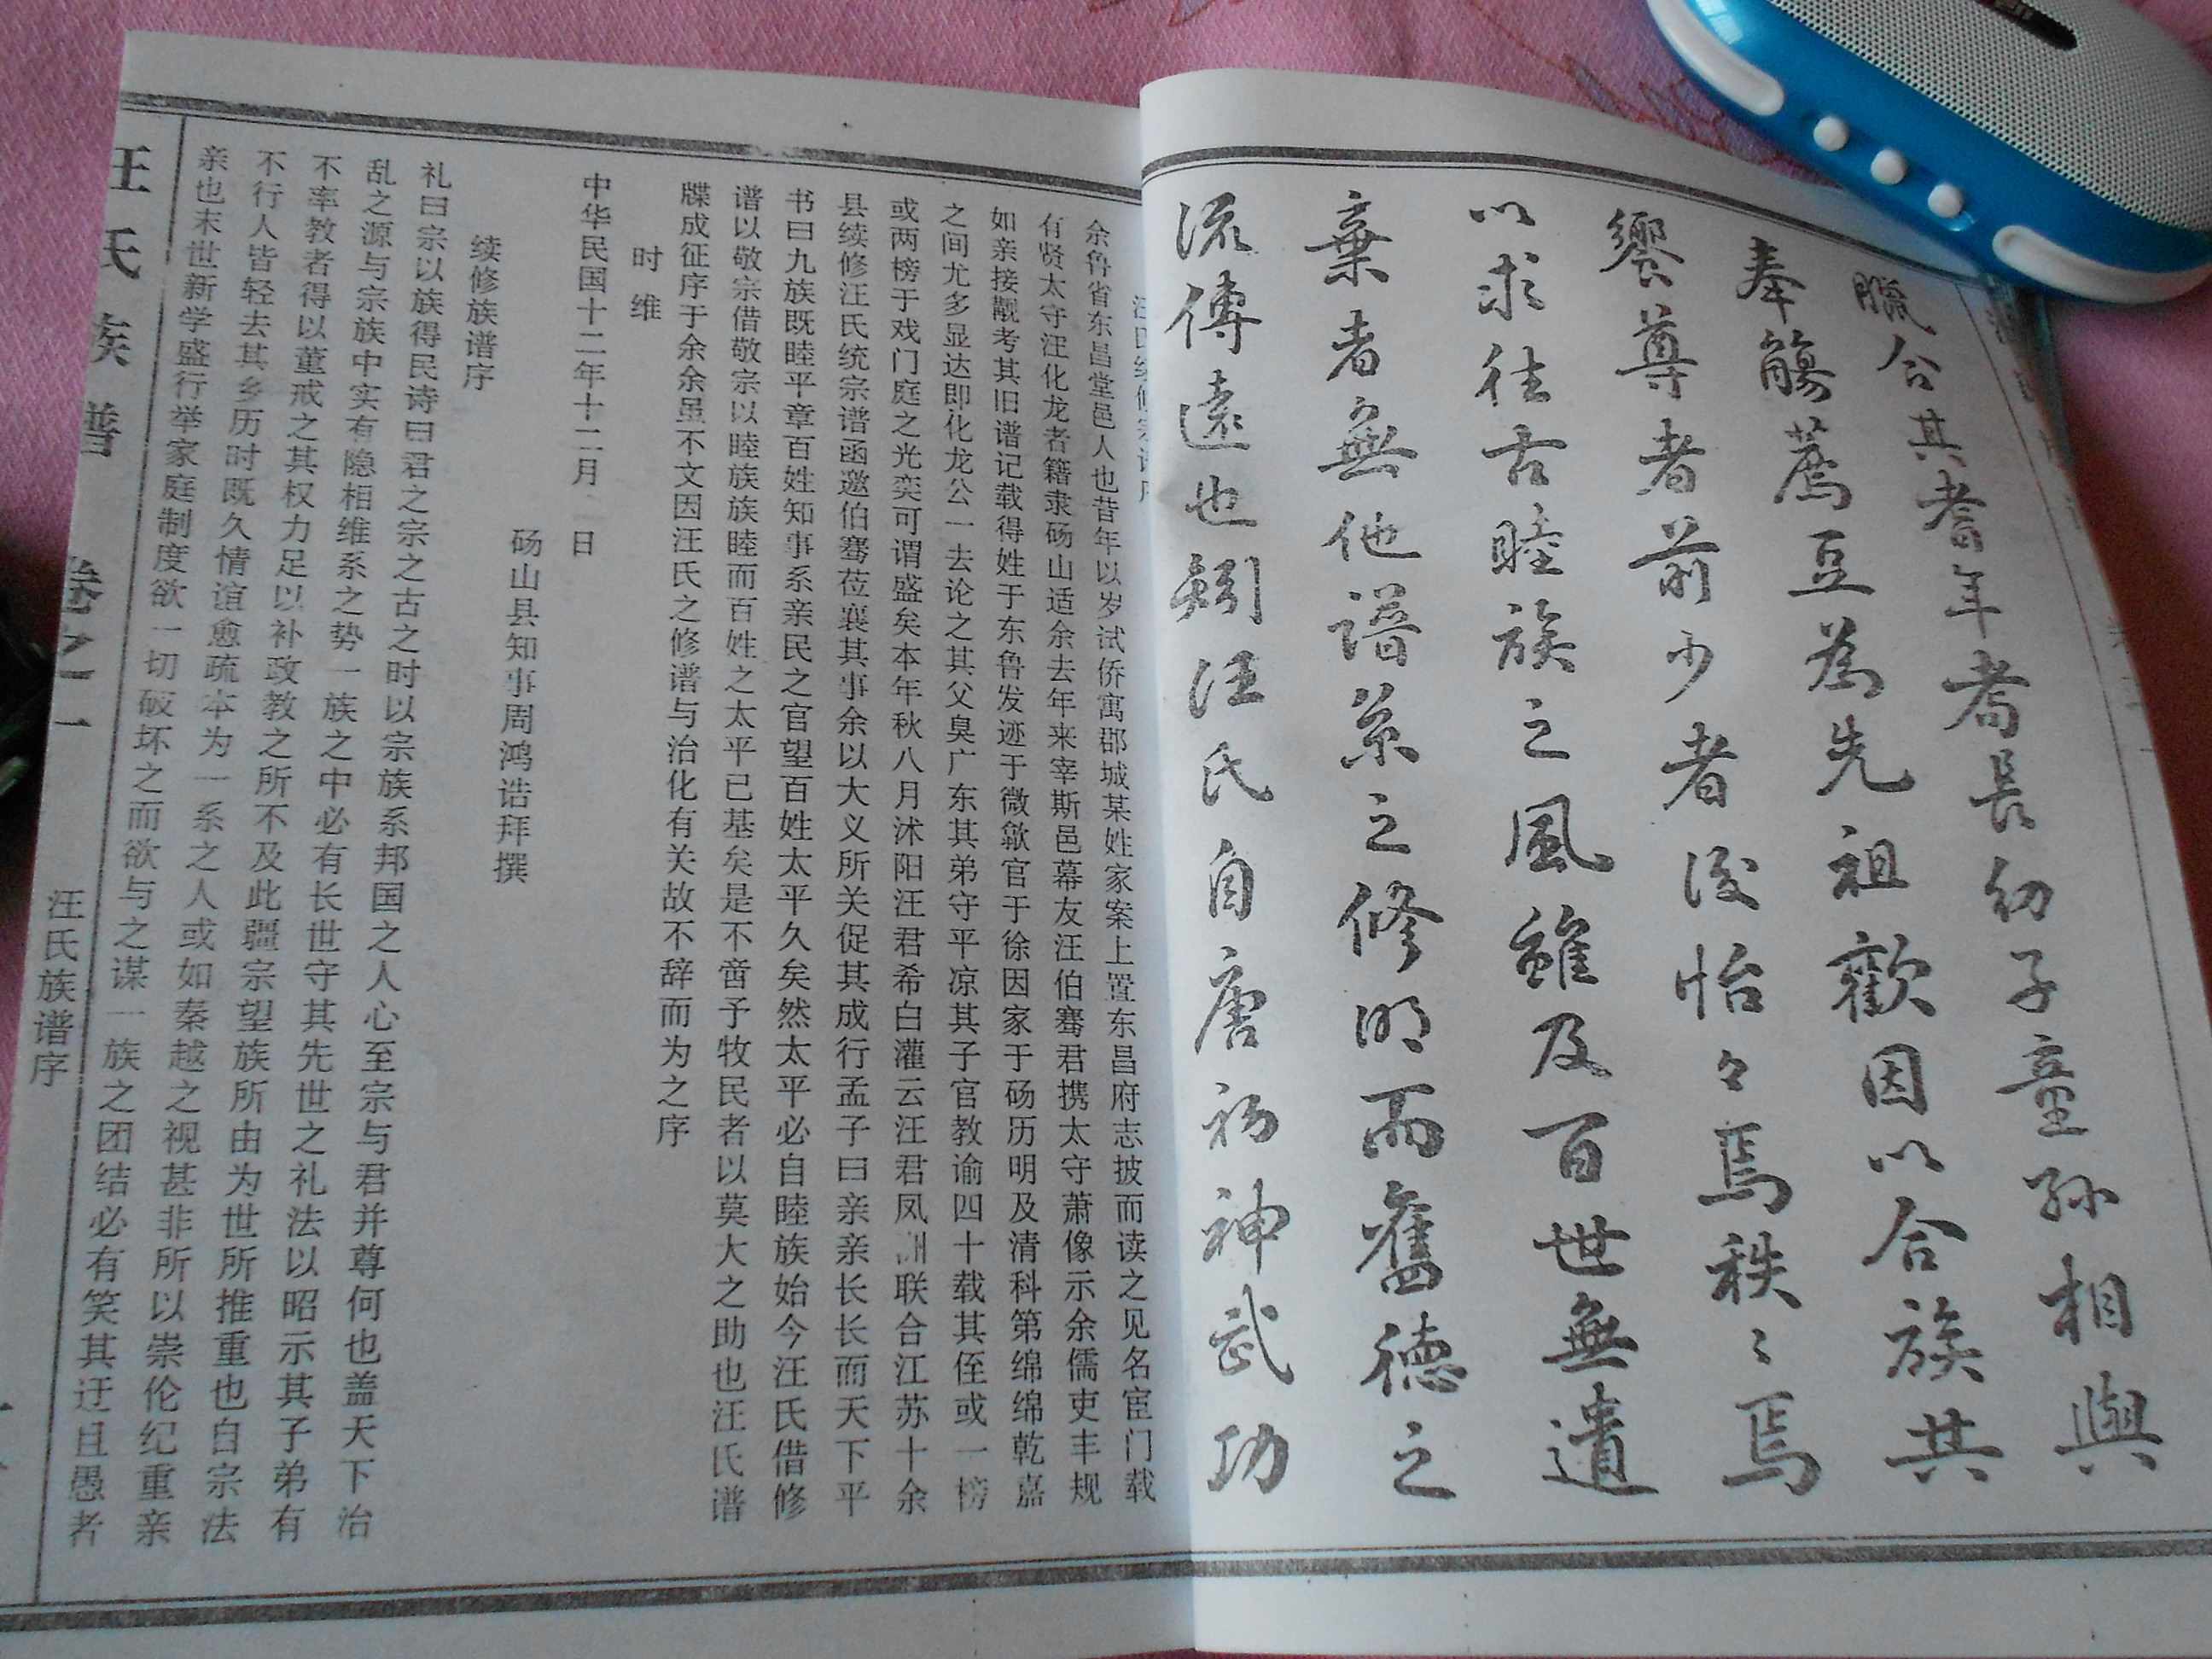 臘合其耆年耆長幼子童孫相與
奉觴薦豆為先祖歡因以合族共
饗尊者前少者後怡々焉秩々焉
以求往古睦族之風雖及百世無遺
棄者無他譜系之修明而舊德之
流傳遠也矧汪氏自唐初神武功
汪氏续修宗谱序
余鲁省东昌堂邑人也昔年以岁试侨寓郡城某姓家案上置东昌府志披而读之见名宦门载
有贤太守汪化龙者籍隶砀山适余去年来宰斯邑幕友汪伯骞君携太守萧像示余儒吏丰规
如亲接觏考其旧谱记载得姓于东鲁发迹于微歙官于徐因家于砀历明及清科第绵绵乾嘉
之间尤多显达即化龙公一去论之其父臭广东其弟守平凉其子官教谕四十载其侄或一榜
或两榜于戏门庭之光奕可谓盛矣本年秋八月沭阳汪君希白灌云汪君凤洲联合江苏十余
县续修汪氏统宗谱函邀伯骞莅襄其事余以大义所关促其成行孟子曰亲亲长长而天下平
书曰九族既睦平章百姓知事系亲民之官望百姓太平久矣然太平必自睦族始今汪氏借修
谱以敬宗借敬宗以睦族族睦而百姓之太平已基矣是不啻予牧民者以莫大之助也汪氏谱
牒成征序于余余虽不文因汪氏之修谱与治化有关故不辞而为之序
时维
中华民国十二年十二月 日
砀山县知事周鸿诰拜撰
续修族谱序
礼曰宗以族得民诗曰君之宗之古之时以宗族系邦国之人心至宗与君并尊何也盖天下治
乱之源与宗族中实有隐相维系之势一族之中必有长世守其先世之礼法以昭示其子弟有
不率教者得以董戒之其权力足以补政教之所不及此疆宗望族所由为世所推重也自宗法
不行人皆轻去其乡历时既久情谊愈疏本为一系之人或如秦越之视甚非所以崇伦纪重亲
亲也末世新学盛行举家庭制度欲一切破坏之而欲与之谋一族之团结必有笑其迂且愚者
汪氏族谱 卷之一 汪氏族谱序